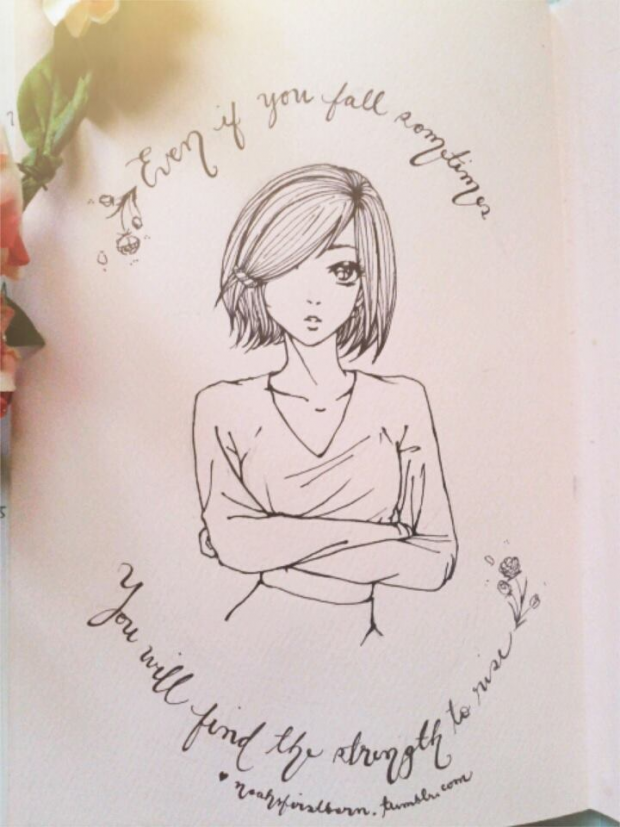 Even if you fall sometimes
You will find the strength to rise
♥ noahsfirstborn.tumblr.com